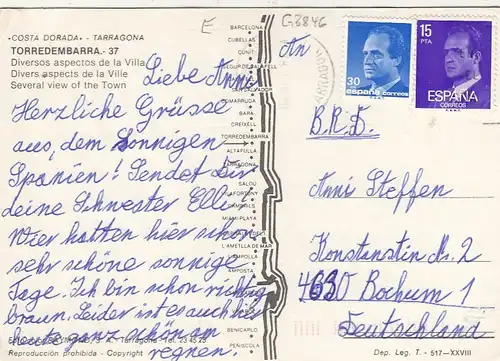 «COSTA DORADA» - TARRAGONA
TORREDEMBARRA.- 37
Diversos aspectos de la Villa
Divers aspects de la Ville
Several view of the Town
E
G3846
Liebe Anni
Herzliche Grüsse
aus, dem Sonnigen
Spanien! Sendet Dir
deine Schwester Elli!
Wier hatten hier schon
sehr schöne sonnige
Tage. Ich bin schon richtig
braun. Leider ist es auch hier
heute ganz schön am
regnen.
BARCELONA
CUBELLAS
CUNIT
SEGUR DE CALAFELL
SAN SALVADOR
COMARRUGA
BARA
CREIXELL
TORREDEMBARRA
ALTAFULLA
TARRAGONA
SALOU
CAMBRILS
MIAMI-PLAYA
L'AMETLLA DE MAR
LA AMPOLLA
AMPOSTA
BENICARLO
PEÑISCOLA
Tarragona Tel. 23 45 25
Reproducción prohibida - Copyright
Dep. Leg. T. - 517-XXVIII
30
españa correos
15
PTA
ESPAÑA
CORREOS
An
B.R.D.
Annis Steffen
Konstanstin Str. 2
4630 Bochum 1
Deutschland